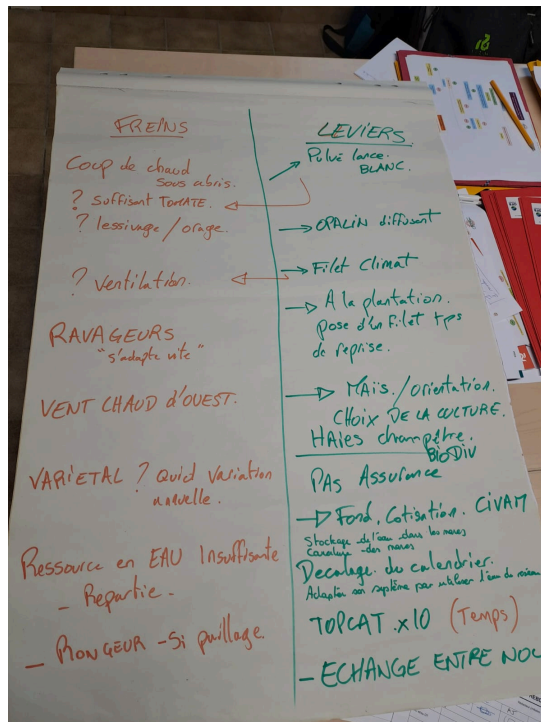 FREINS
Coup de chaud
sous abris.
? Suffisant TOMATE.
? lessivage / orage.
? Ventilation.
RAVAGEURS
"s'adapte vite"
VENT CHAUD d'OUEST.
VARIETAL ? Quid Variation
annuelle.
Ressource en EAU Insuffisante
- Repartie -
- RONGEUR - Si paillage.
LEVIERS
Pulvé lance.
BLANC.
→ OPALIN diffusant
→ Filet Climat
→ A la plantation.
pose d'un filet tps
de reprise.
→ MAïs. / orientation.
CHOIX DE LA CULTURE.
HAies champêtre.
BioDiv
PAs Assurance
→ Fond. Cotisation. CiVAM
Stockage de l'eau dans les mares
des mares
Decalage du calendrier.
Adapter son système par utiliser l'eau du réseau
TOPCAT .x10 (Temps)
- ECHANGE ENTRE NOU